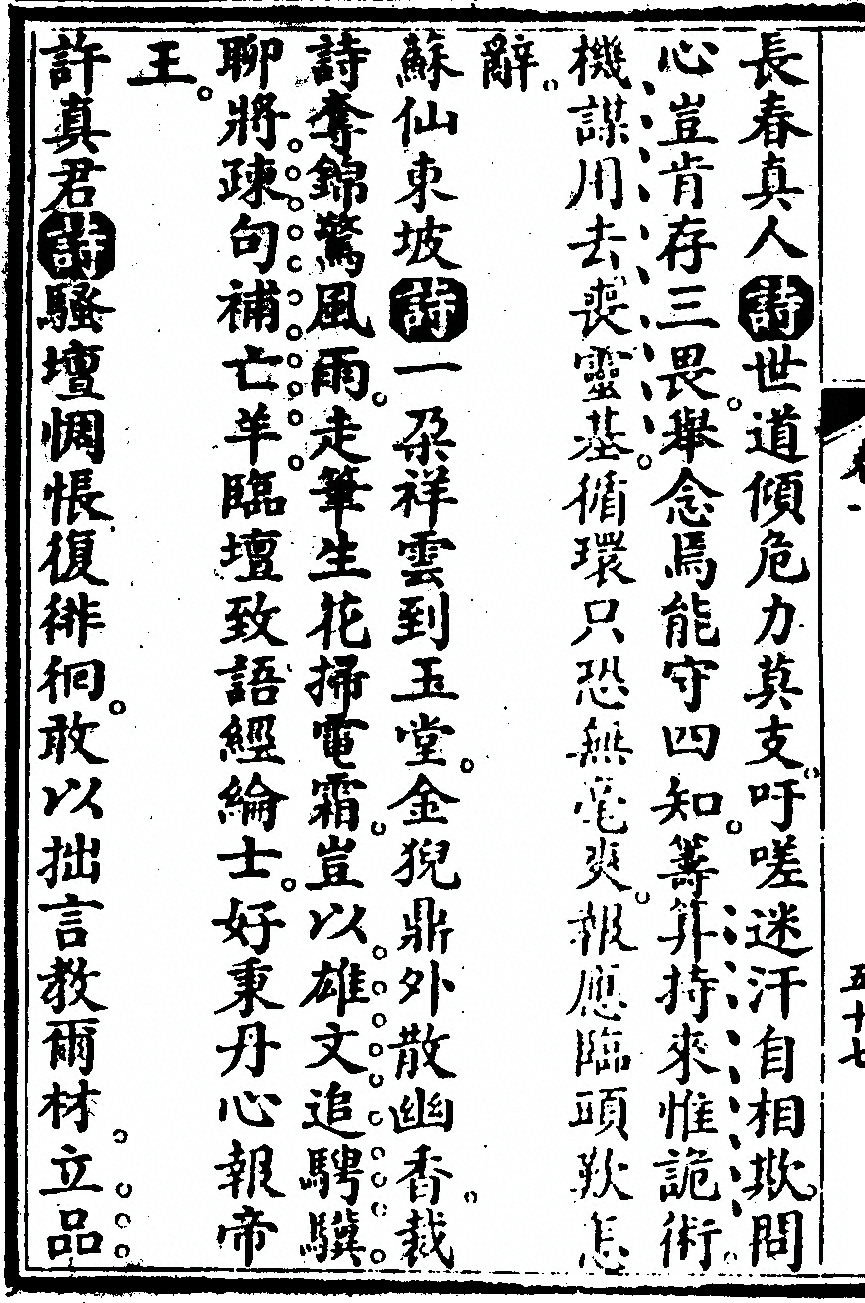 長春真人詩世道傾危力莫支吁嗟迷汗自相欺問
心豈肯存三畏舉念焉能守四知籌算持來惟詭術
機謀用去喪靈基循環只恐無毫爽報應臨頭歎怎
辭
蘇仙東坡詩一朶祥雲到玉堂金猊鼎外散幽香裁
詩奪錦驚風雨走筆生花掃電霜豈以雄文追騁驥
聊將疎句補亡羊臨壇致語經綸士好秉丹心報帝
王
許真君詩騷壇惆悵復徘徊敢以拙言教爾材立品
五十七